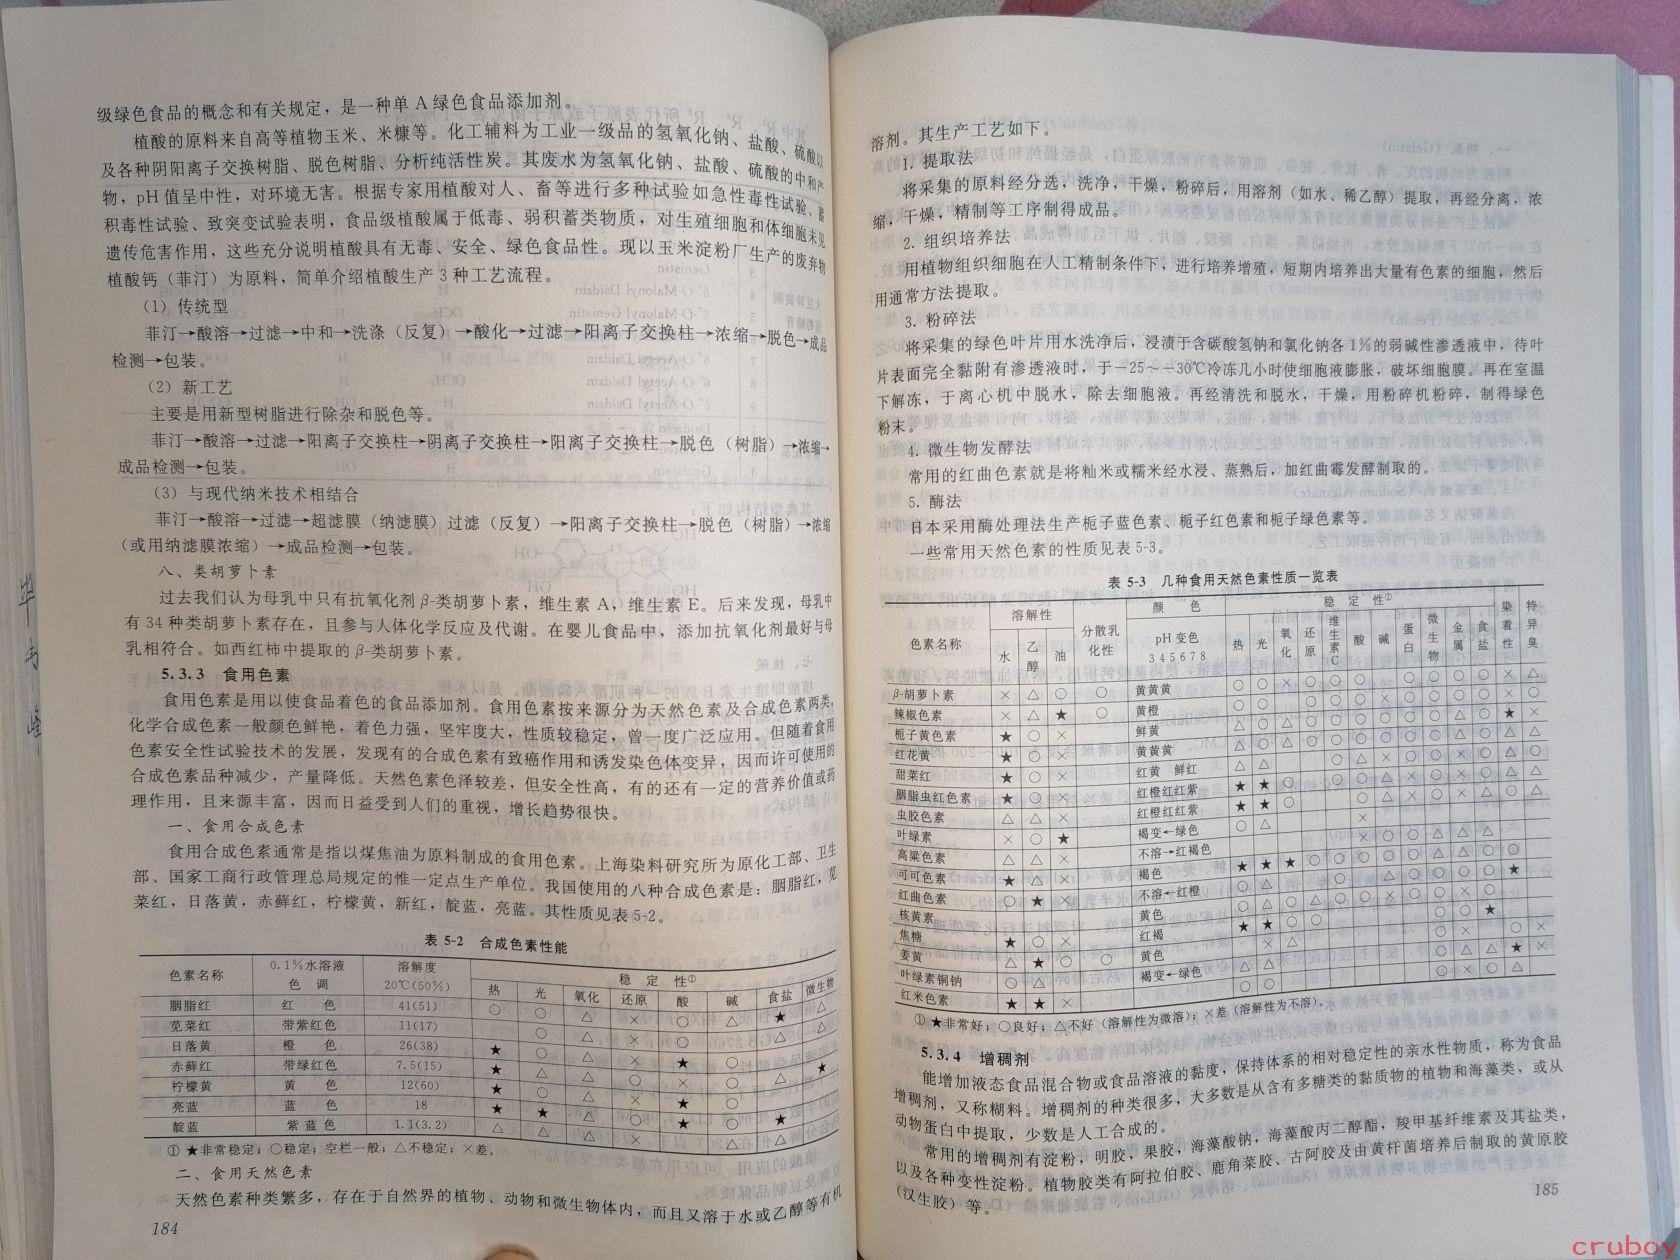 级绿色食品的概念和有关规定，是一种单 A 绿色食品添加剂。
植酸的原料来自高等植物玉米、米糠等。化工辅料为工业一级品的氢氧化钠、盐酸、硫酸以
及各种阴阳离子交换树脂、脱色树脂、分析纯活性炭。其废水为氢氧化钠、盐酸、硫酸的中和产
物，pH 值呈中性，对环境无害。根据专家用植酸对人、畜等进行多种试验如急性毒性试验、蓄
积毒性试验、致突变试验表明，食品级植酸属于低毒、弱积蓄类物质，对生殖细胞和体细胞未见
遗传危害作用，这些充分说明植酸具有无毒、安全、绿色食品性。现以玉米淀粉厂生产的废弃物
植酸钙（菲汀）为原料，简单介绍植酸生产 3 种工艺流程。
（1）传统型
菲汀→酸溶→过滤→中和→洗涤（反复）→酸化→过滤→阳离子交换柱→浓缩→脱色→成品
检测→包装。
（2）新工艺
主要是用新型树脂进行除杂和脱色等。
菲汀→酸溶→过滤→阳离子交换柱→阴离子交换柱→阳离子交换柱→脱色（树脂）→浓缩→
成品检测→包装。
（3）与现代纳米技术相结合
菲汀→酸溶→过滤→超滤膜（纳滤膜）过滤（反复）→阳离子交换柱→脱色（树脂）→浓缩
（或用纳滤膜浓缩）→成品检测→包装。
八、类胡萝卜素
过去我们认为母乳中只有抗氧化剂 β-类胡萝卜素，维生素 A，维生素 E。后来发现，母乳中
有 34 种类胡萝卜素存在，且参与人体化学反应及代谢。在婴儿食品中，添加抗氧化剂最好与母
乳相符合。如西红柿中提取的 β-类胡萝卜素。
5.3.3 食用色素
食用色素是用以使食品着色的食品添加剂。食用色素按来源分为天然色素及合成色素两类，
化学合成色素一般颜色鲜艳，着色力强，坚牢度大，性质较稳定，曾一度广泛应用。但随着食用
色素安全性试验技术的发展，发现有的合成色素有致癌作用和诱发染色体变异，因而许可使用的
合成色素品种减少，产量降低。天然色素色泽较差，但安全性高，有的还有一定的营养价值或药
理作用，且来源丰富，因而日益受到人们的重视，增长趋势很快。
一、食用合成色素
食用合成色素通常是指以煤焦油为原料制成的食用色素。上海染料研究所为原化工部、卫生
部、国家工商行政管理总局规定的惟一定点生产单位。我国使用的八种合成色素是：胭脂红，苋
菜红，日落黄，赤藓红，柠檬黄，新红，靛蓝，亮蓝。其性质见表 5-2。
表 5-2 合成色素性能
色素名称 0.1%水溶液色 调 溶解度20℃(50%) 稳 定 性①
热 光 氧化 还原 酸 碱 食盐 微生物
胭脂红 红 色 41(51) ○ ○ △ × ○ △ ★ △
苋菜红 带紫红色 11(17) ○ △ × ○ △
日落黄 橙 色 26(38) ★ ○ △ × ★ ○
赤藓红 带绿红色 7.5(15) ★ △ △ ○ × ○ △ ★
柠檬黄 黄 色 12(60) ★ ○ △ × ★ ○
亮蓝 蓝 色 18 ★ ★ △ ○ ★ ○ ○
靛蓝 紫 蓝 色 1.1(3.2) △ △ △ × △ △
① ★非常稳定；○稳定；空栏一般；△不稳定；×差。
二、食用天然色素
天然色素种类繁多，存在于自然界的植物、动物和微生物体内，而且又溶于水或乙醇等有机
184
溶剂。其生产工艺如下。
1. 提取法
将采集的原料经分选，洗净，干燥，粉碎后，用溶剂（如水、稀乙醇）提取，再经分离，浓
缩，干燥，精制等工序制得成品。
2. 组织培养法
用植物组织细胞在人工精制条件下，进行培养增殖，短期内培养出大量有色素的细胞，然后
用通常方法提取。
3. 粉碎法
将采集的绿色叶片用水洗净后，浸渍于含碳酸氢钠和氯化钠各 1%的弱碱性渗透液中，待叶
片表面完全黏附有渗透液时，于－25～－30℃冷冻几小时使细胞液膨胀，破坏细胞膜。再在室温
下解冻，于离心机中脱水，除去细胞液，再经清洗和脱水，干燥，用粉碎机粉碎，制得绿色
粉末。
4. 微生物发酵法
常用的红曲色素就是将籼米或糯米经水浸、蒸熟后，加红曲霉发酵制取的。
5. 酶法
日本采用酶处理法生产栀子蓝色素、栀子红色素和栀子绿色素等。
一些常用天然色素的性质见表 5-3。
表 5-3 几种食用天然色素性质一览表
色素名称 溶解性 分散乳化性 颜 色 稳 定 性① 染着性 特异臭
水 乙醇 油 pH 变色 3 4 5 6 7 8 热 光 氧化 还原 维生素C 酸 碱 蛋白 微生物 金属 食盐
β-胡萝卜素 × △ ○ ○ 黄黄黄
辣椒色素 × △ ★ ○ 黄橙
栀子黄色素 ★ ○ × 鲜黄
红花黄 ★ ○ × 黄黄黄
甜菜红 ★ ○ × 红黄 鲜红
胭脂虫红色素 ★ ○ × 红橙红红紫
虫胶色素 △ △ × 红橙红红紫
叶绿素 × ○ ★ 褐变←绿色
高粱色素 △ △ × 不溶→红褐色
可可色素 ★ △ × 褐色
红曲色素 ○ ★ × 不溶←红橙
核黄素 黄色
焦糖 ★ ○ × 红褐
姜黄 △ ★ ○ ○ 黄色
叶绿素铜钠 ○ △ 褐变←绿色
红米色素 ★ ★ ×
① ★非常好；○良好；△不好（溶解性为微溶）；×差（溶解性为不溶）。
5.3.4 增稠剂
能增加液态食品混合物或食品溶液的黏度，保持体系的相对稳定性的亲水性物质，称为食品
增稠剂，又称糊料。增稠剂的种类很多，大多数是从含有多糖类的黏质物的植物和海藻类，或从
动物蛋白中提取，少数是人工合成的。
常用的增稠剂有淀粉，明胶，果胶，海藻酸钠，海藻酸丙二醇酯，羧甲基纤维素及其盐类，
以及各种变性淀粉。植物胶类有阿拉伯胶、鹿角菜胶、古阿胶及由黄杆菌培养后制取的黄原胶
（汉生胶）等。
185
cruboy